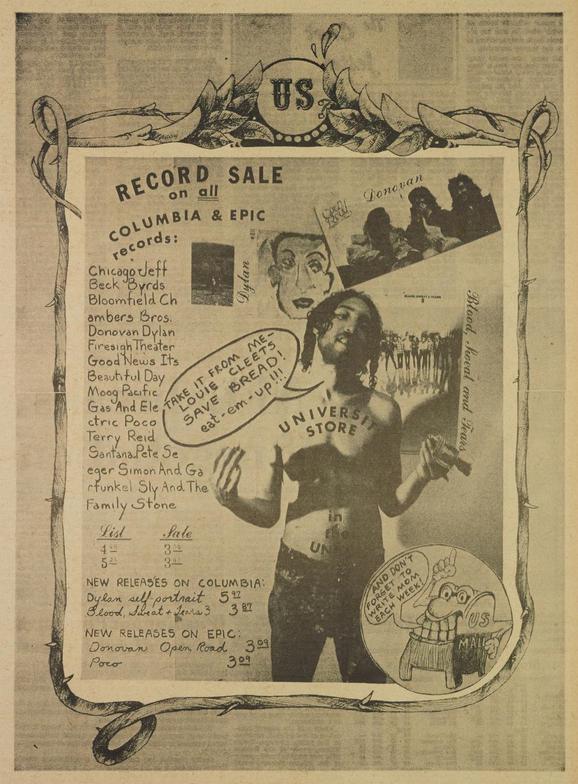 US.
RECORD SALE
on all
COLUMBIA & EPIC
records:
Chicago Jeff
Beck Byrds
Bloomfield Ch
ambers Bros.
Donovan Dylan
Firesign Theater
Good News Its
Beautiful Day
Moog Pacific
Gas And Ele
ctric Poco
Terry Reid
Santana Pete Se
eger Simon And Ga
rfunkel Sly And The
Family Stone
List Sale
4
3
5
3
NEW RELEASES ON COLUMBIA:
Dylan self-portrait 5.97
Blood, Sweat + Tears 3 3.87
NEW RELEASES ON EPIC:
Donovan Open Road 3.09
Poco 3.09
Dylan
Donovan
Blood, Sweat and Tears
TAKE IT FROM ME-
LOUIE CLEETS
SAVE BREAD!
eat-em-up!!!
UNIVERSIT
STORE
in
the
UN
AND DON'T
FORGET TO
WRITE MOM
EACH WEEK!
US
MAIL